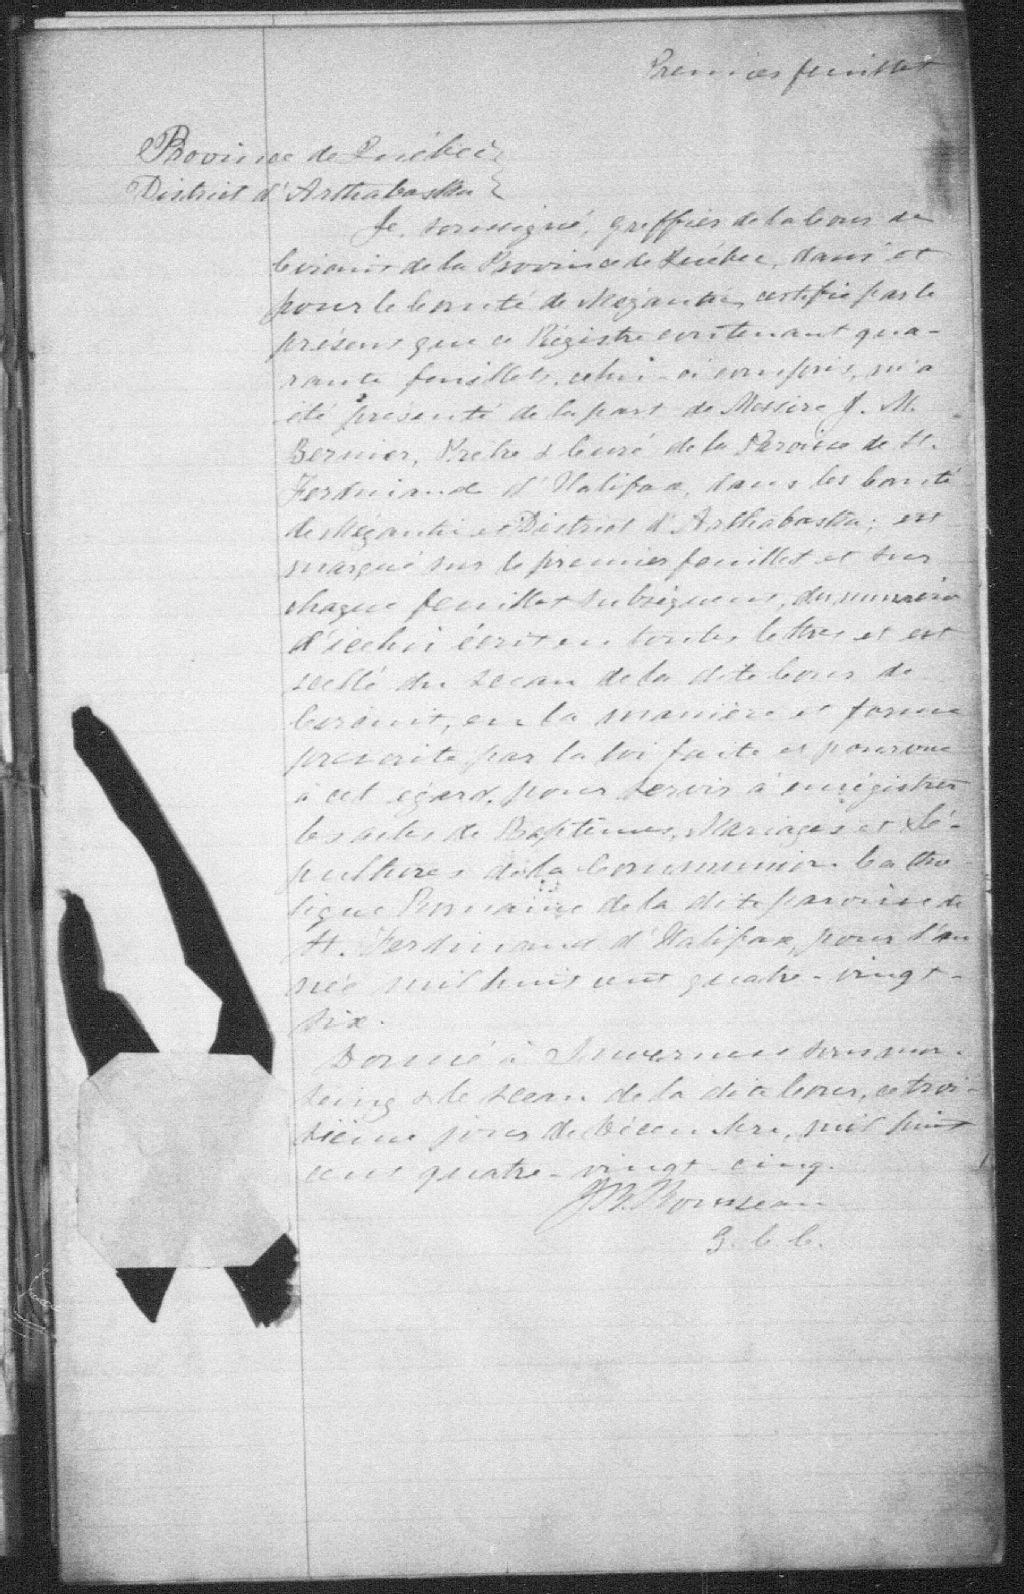 Premier feuillet
Province de Québec
District d'Arthabaska
Je, soussigné, greffier de la Cour de
Circuit de la Province de Québec, dans et
pour le Comté de Mégantic, certifie par le
présent que ce Régistre contenant qua-
rante feuillets, celui-ci compris, m'a
été présenté de la part de Messire J. M.
Bernier, Prêtre & Curé de la Paroisse de St.
Ferdinand d'Halifax, dans les Comté
de Mégantic et District d'Arthabaska; est
marqué sur le premier feuillet et sur
chaque feuillet subséquent, du numéro
d'icelui écrit en toutes lettres et est
scellé du sceau de la dite Cour de
Circuit, en la manière et forme
prescrite par la loi faite et pourvue
à cet égard, pour servir à enrégistrer
les actes de Baptêmes, Mariages et Sé-
pultures de la Communion Catho-
lique Romaine de la dite paroisse de
St. Ferdinand d'Halifax, pour l'an
née mil huit cent quatre-vingt-
six.
Donné à Inverness sous mon
seing & le sceau de la dite Cour, ce troi-
sième jour de Décembre, mil huit
cent quatre-vingt-cinq.
Rousseau
G. C. C.